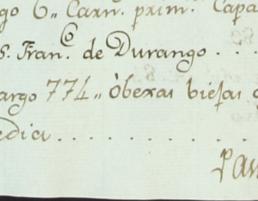 go 6„ Carn.ˢ prim.ˢ Capa
s. Fran.ᶜᵒ de Durango . . .
argo 774„ òbexas biejas
edia . . . . . . . . . . .